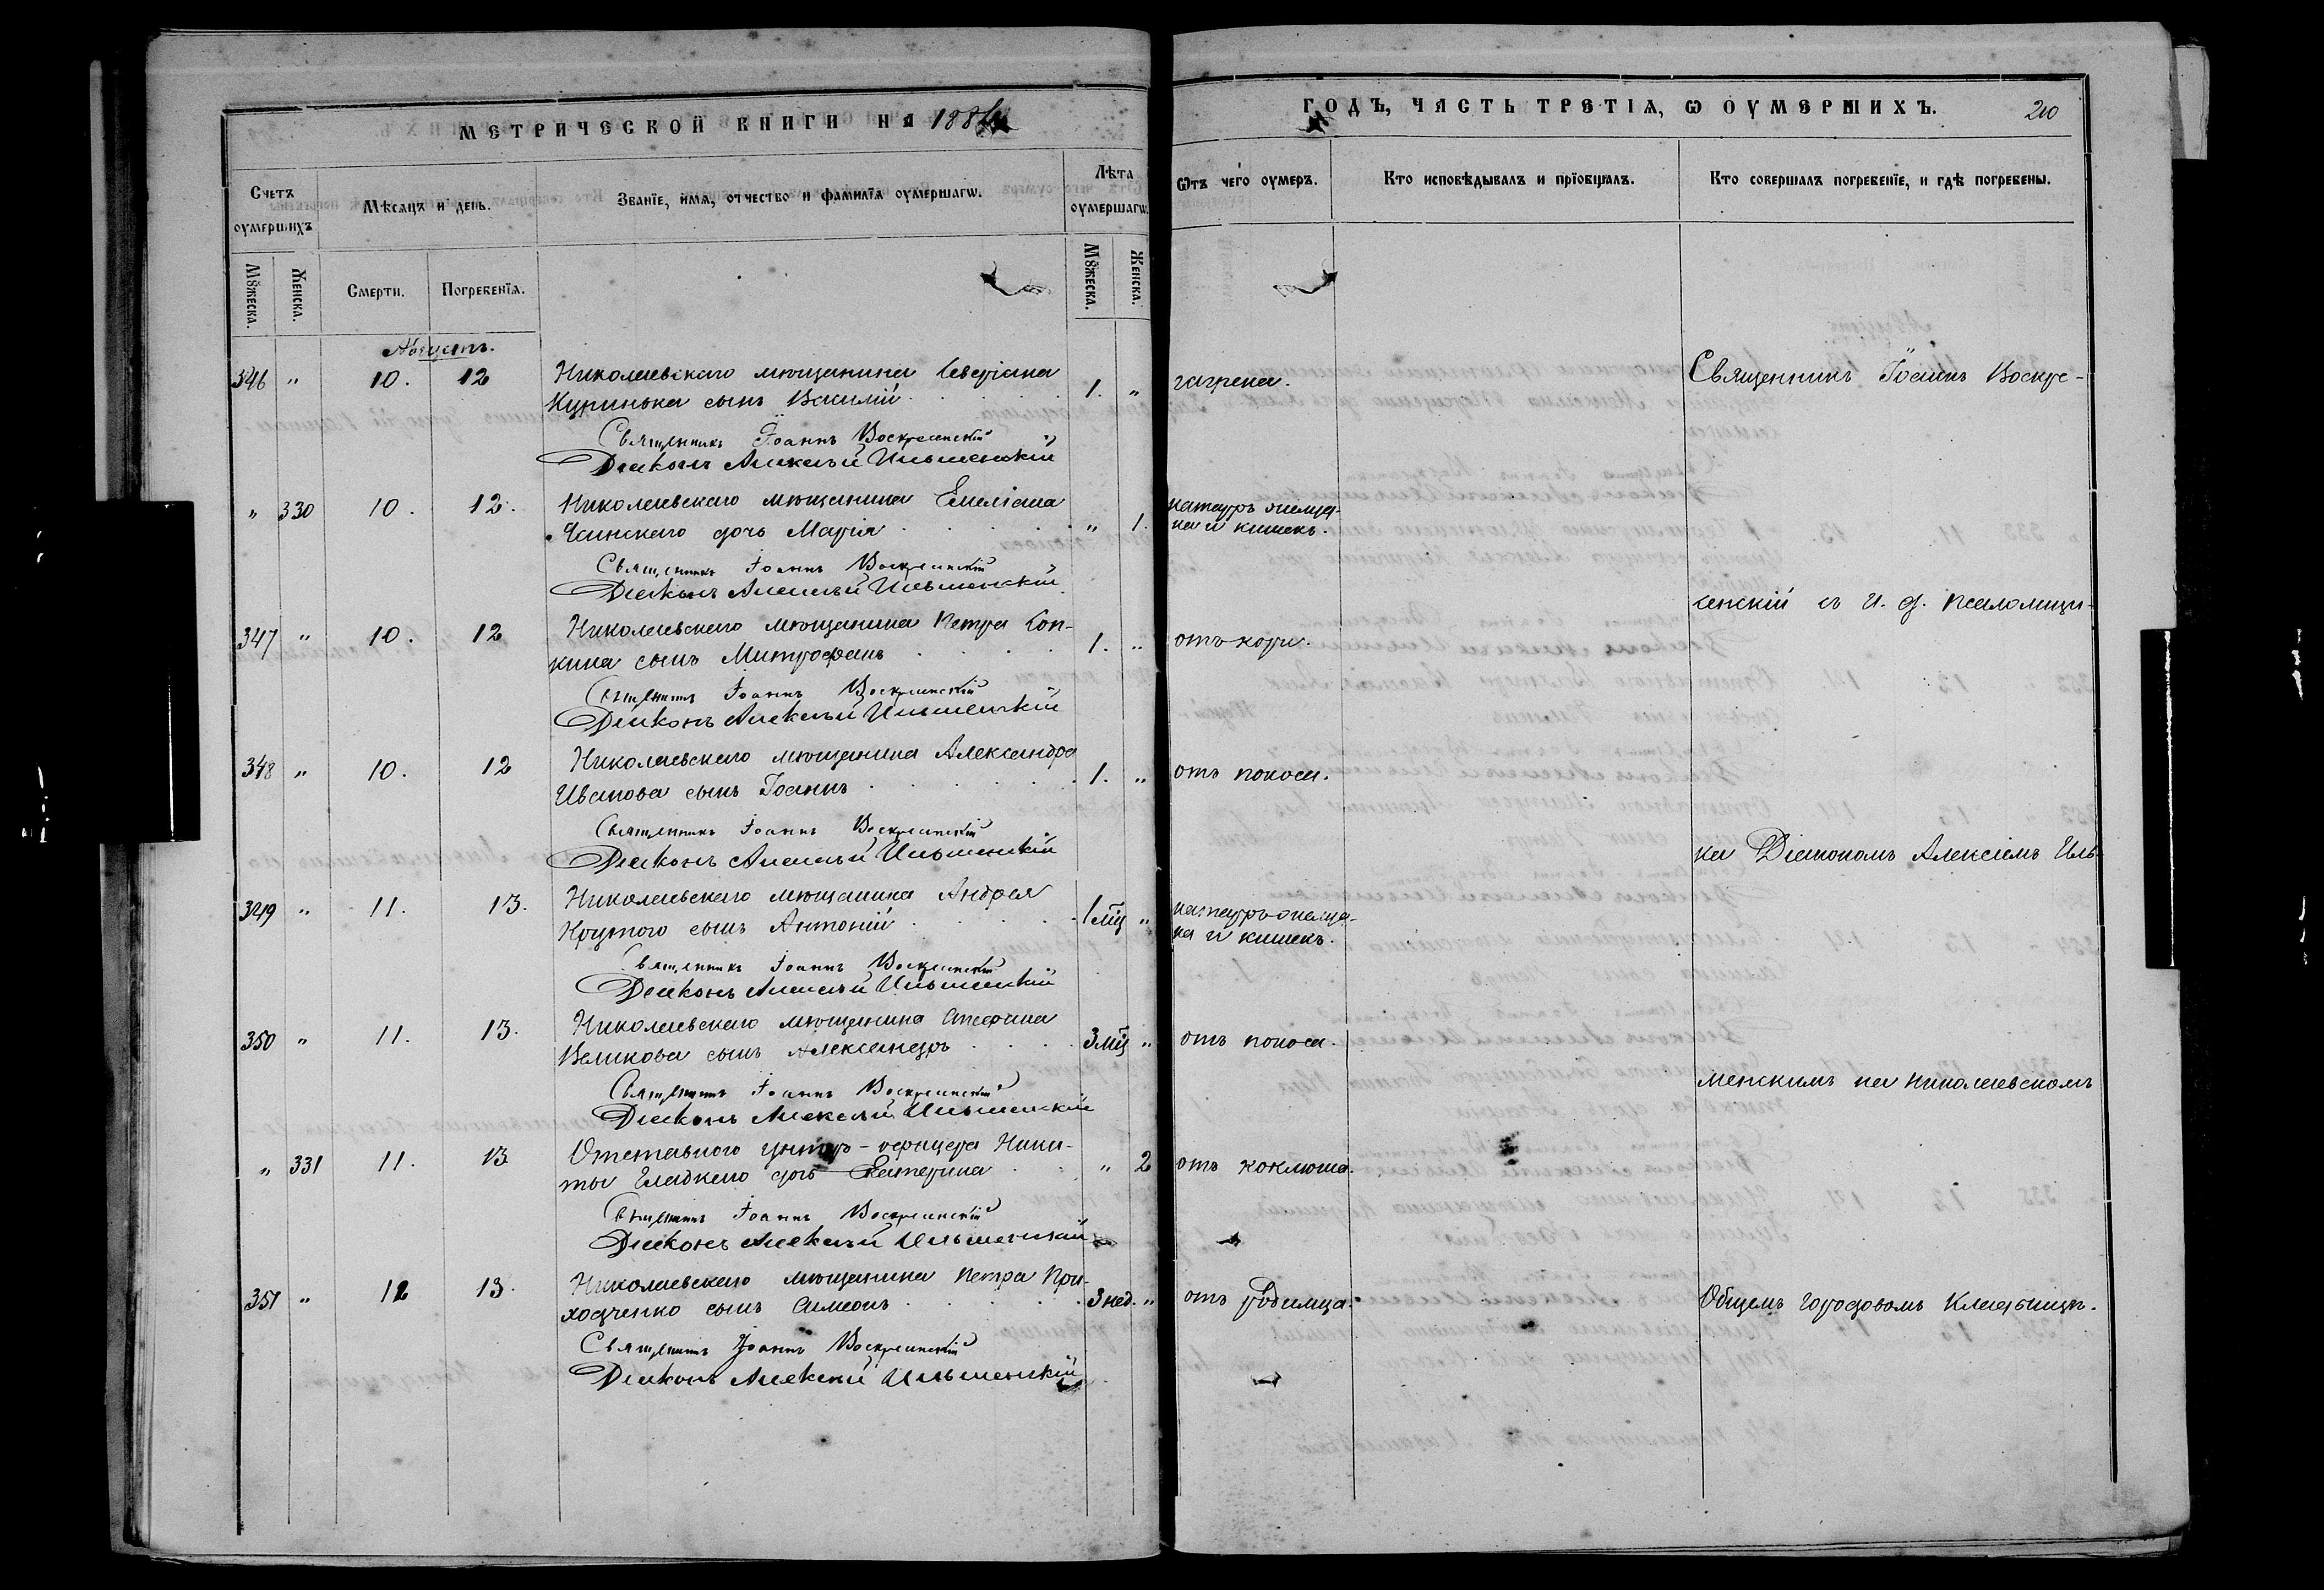 МЕТРИЧЕСКОЙ КНИГИ НА 188
ГОДЪ, ЧАСТЬ ТРЕТІЯ, Ѡ ОУМЕРШИХЪ.
210
Счетъ оумершихъ
Мѣсяцъ и день.
Званїе, имя, отчество и фамилїя оумершагѡ.
Лѣта оумершагѡ.
Ѿтъ чегѡ оумеръ.
Кто исповѣдывалъ и прїобщалъ.
Кто совершалъ погребенїе, и гдѣ погребены.
Мꙋжеска.
Женска.
Смерти.
Погребенїя.
Мꙋжеска.
Женска.
Августъ.
346 " 10. 12 Николаевскаго мѣщанина Северіана 1. " гагрена. Священникъ Іоаннъ Воскре-
Куринька сынъ Василій
Священникъ Іоаннъ Воскресенскій
Діаконъ Алексѣй Ильменскій
" 330 10. 12. Николаевскаго мѣщанина Емеліана " 1. катарръ желуд-
Ясинскаго дочь Марія ка и кишекъ.
Священникъ Іоаннъ Воскресенскій
Діаконъ Алексѣй Ильменскій
сенскій съ и. д. псаломщи-
347 " 10. 12 Николаевскаго мѣщанина Петра Соп- 1. " отъ кори.
кина сынъ Митрофанъ
Священникъ Іоаннъ Воскресенскій
Діаконъ Алексѣй Ильменскій
348 " 10. 12 Николаевскаго мѣщанина Александра 1. " отъ поноса.
Иванова сынъ Іоаннъ
Священникъ Іоаннъ Воскресенскій
Діаконъ Алексѣй Ильменскій
ка Діакономъ Алексіемъ Иль-
349 " 11. 13. Николаевскаго мѣщанина Андрея 1 мц "
Крутого сынъ Антоній ка и кишекъ.
Священникъ Іоаннъ Воскресенскій
Діаконъ Алексѣй Ильменскій
350 " 11. 13. Николаевскаго мѣщанина Стефана 3 мц " отъ поноса.
Великова сынъ Александръ
Священникъ Іоаннъ Воскресенскій
менскимъ на Николаевскомъ
Діаконъ Алексѣй Ильменскій
" 331 11. 13 Отставного унтеръ-офицера Ники- " 2 отъ коклюша.
ты Гладкаго дочь Екатерина
Священникъ Іоаннъ Воскресенскій
Діаконъ Алексѣй Ильменскій
351 " 12 13. Николаевскаго мѣщанина Петра При- 3 нед. " отъ родимца. Общемъ городовомъ кладбищѣ.
ходченко сынъ Симеонъ
Священникъ Іоаннъ Воскресенскій
Діаконъ Алексѣй Ильменскій